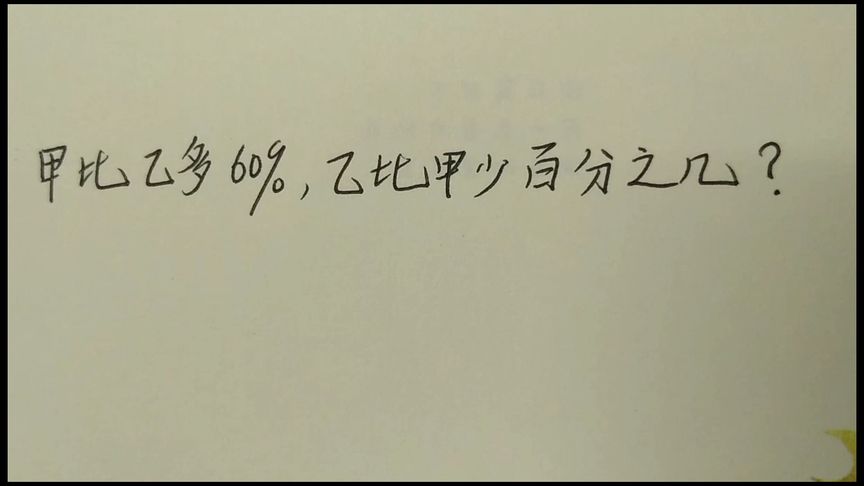 甲比乙多60%,乙比甲少百分之几?